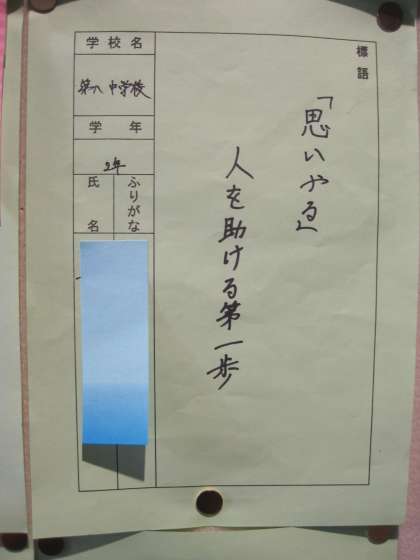 標語
「思いやる」
人を助ける第一歩
学校名
第八中学校
学年
2年
ふりがな
氏名